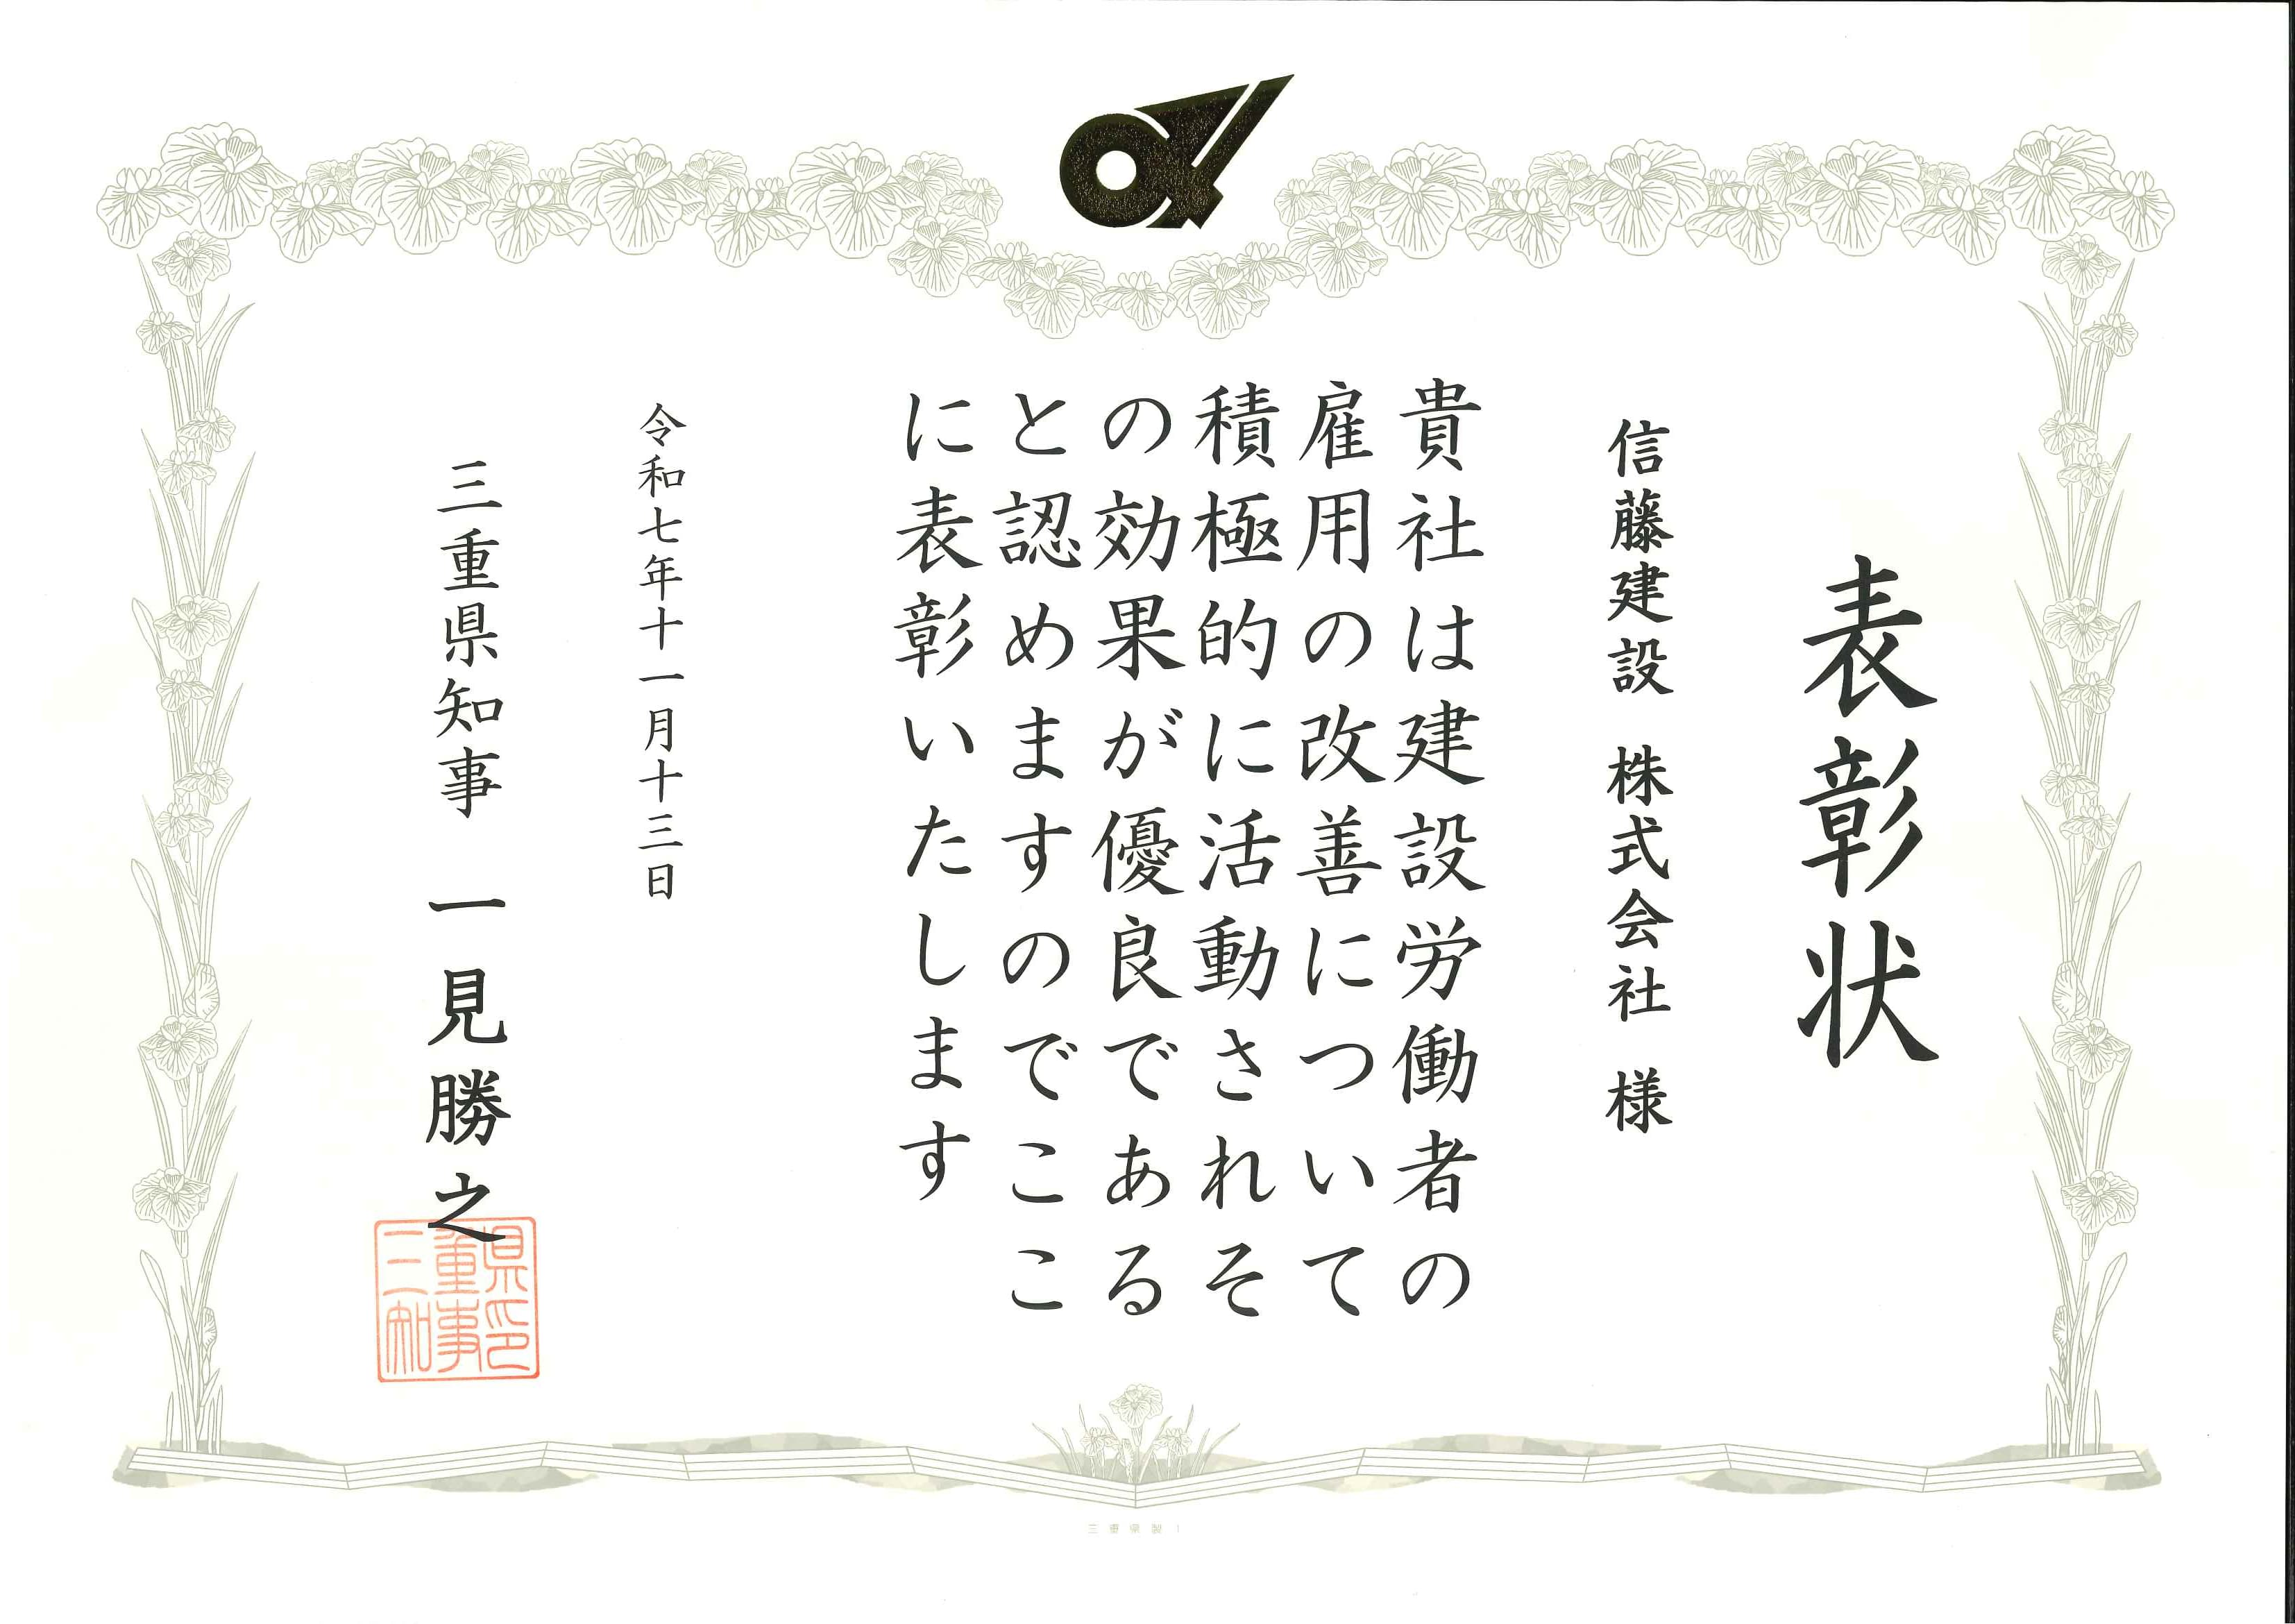 表彰状
信藤建設 株式会社 様
貴社は建設労働者の
雇用の改善について
積極的に活動されそ
の効果が優良である
と認めますのでここ
に表彰いたします
令和七年十一月十三日
三重県知事 一見勝之
三重県
知事印
三重県製1